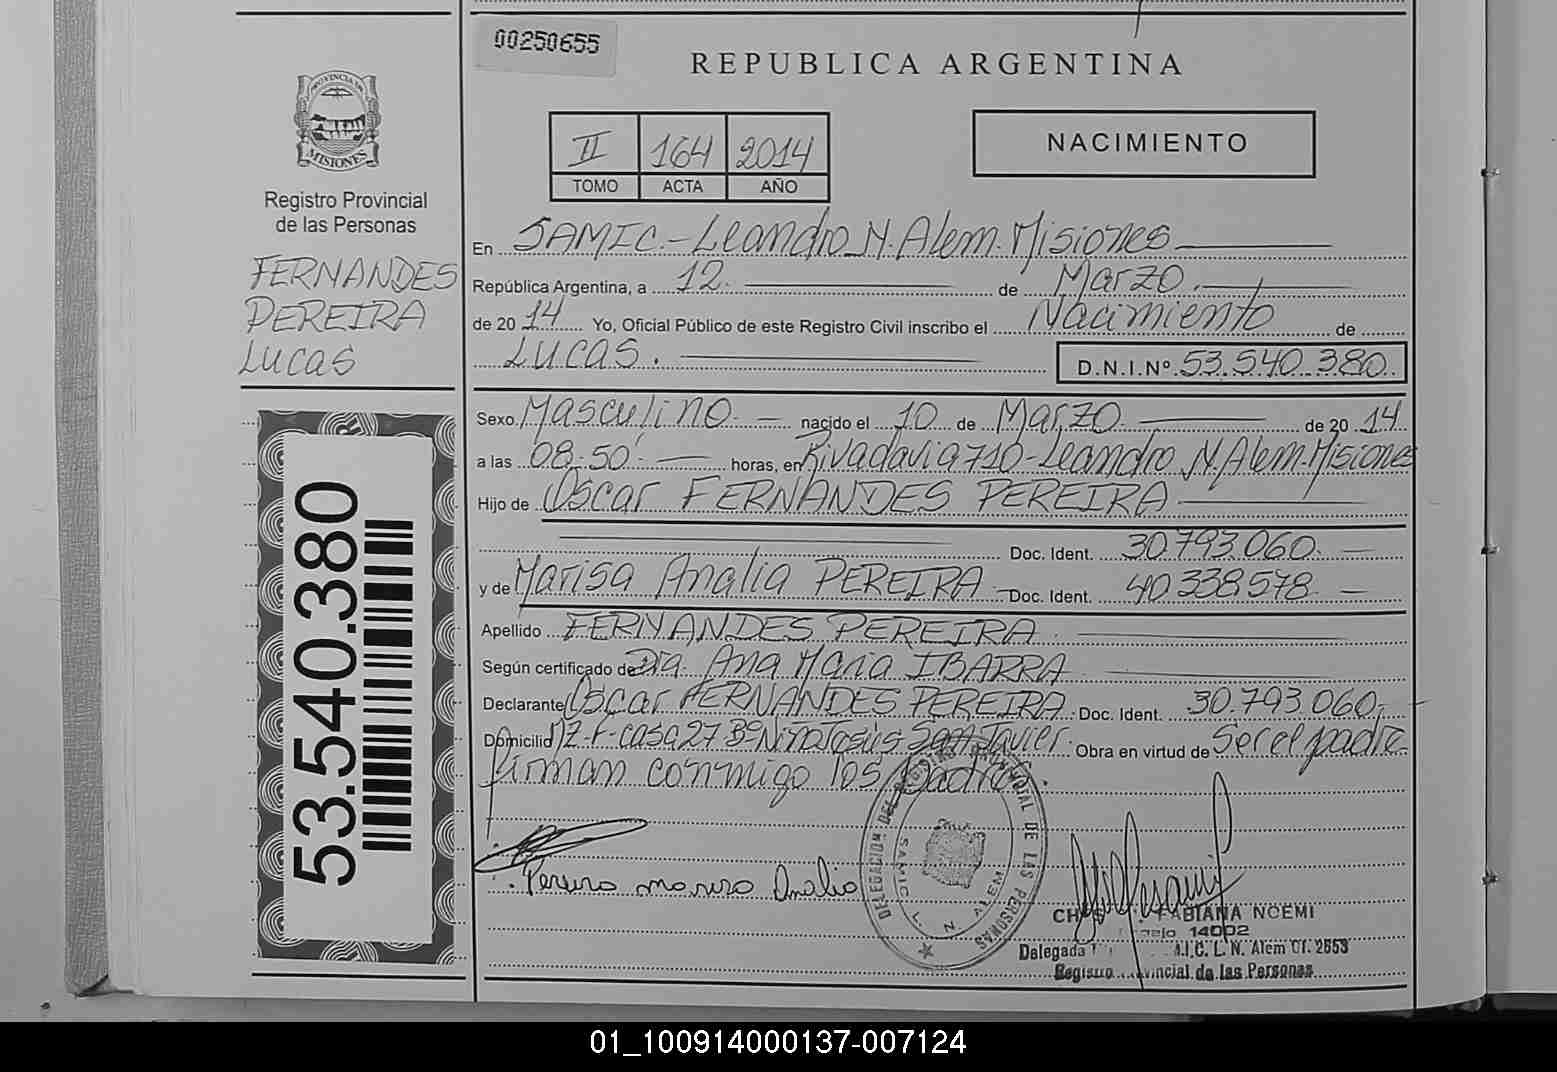 00250655
REPUBLICA ARGENTINA
PROVINCIA DE
MISIONES
Registro Provincial
de las Personas
FERNANDES
PEREIRA
LUCAS
II 164 2014
TOMO ACTA AÑO
NACIMIENTO
En SAMIC.-Leandro N. Alem. Misiones
República Argentina, a 12. de Marzo.
de 20 14 Yo, Oficial Público de este Registro Civil inscribo el Nacimiento de
LUCAS. D.N.I.Nº 53.540.380.
Sexo Masculino nacido el 10 de Marzo de 20 14
a las 08:50 horas, en Rivadavia 710-Leandro N. Alem. Misiones
Hijo de Oscar FERNANDES PEREIRA
Doc. Ident. 30.793.060.
y de Marisa Analia PEREIRA Doc. Ident. 40.338.578
Apellido FERNANDES PEREIRA.
Según certificado de Dra. Ana Maria IBARRA
Declarante Oscar FERNANDES PEREIRA. Doc. Ident. 30.793.060.
Domicilio MZ-F-casa 27 Bº Niño Jesús San Javier. Obra en virtud de Ser el padre.
firman conmigo los padres.
Pereira marisa Analia
DELEGACION DEL REGISTRO PROVINCIAL DE LAS PERSONAS
SAMIC L. N. ALEM
FABIANA NOEMI
14002
Delegada A.I.C. L. N. Alem Of. 2553
Registro Provincial de las Personas
53.540.380
01_100914000137-007124